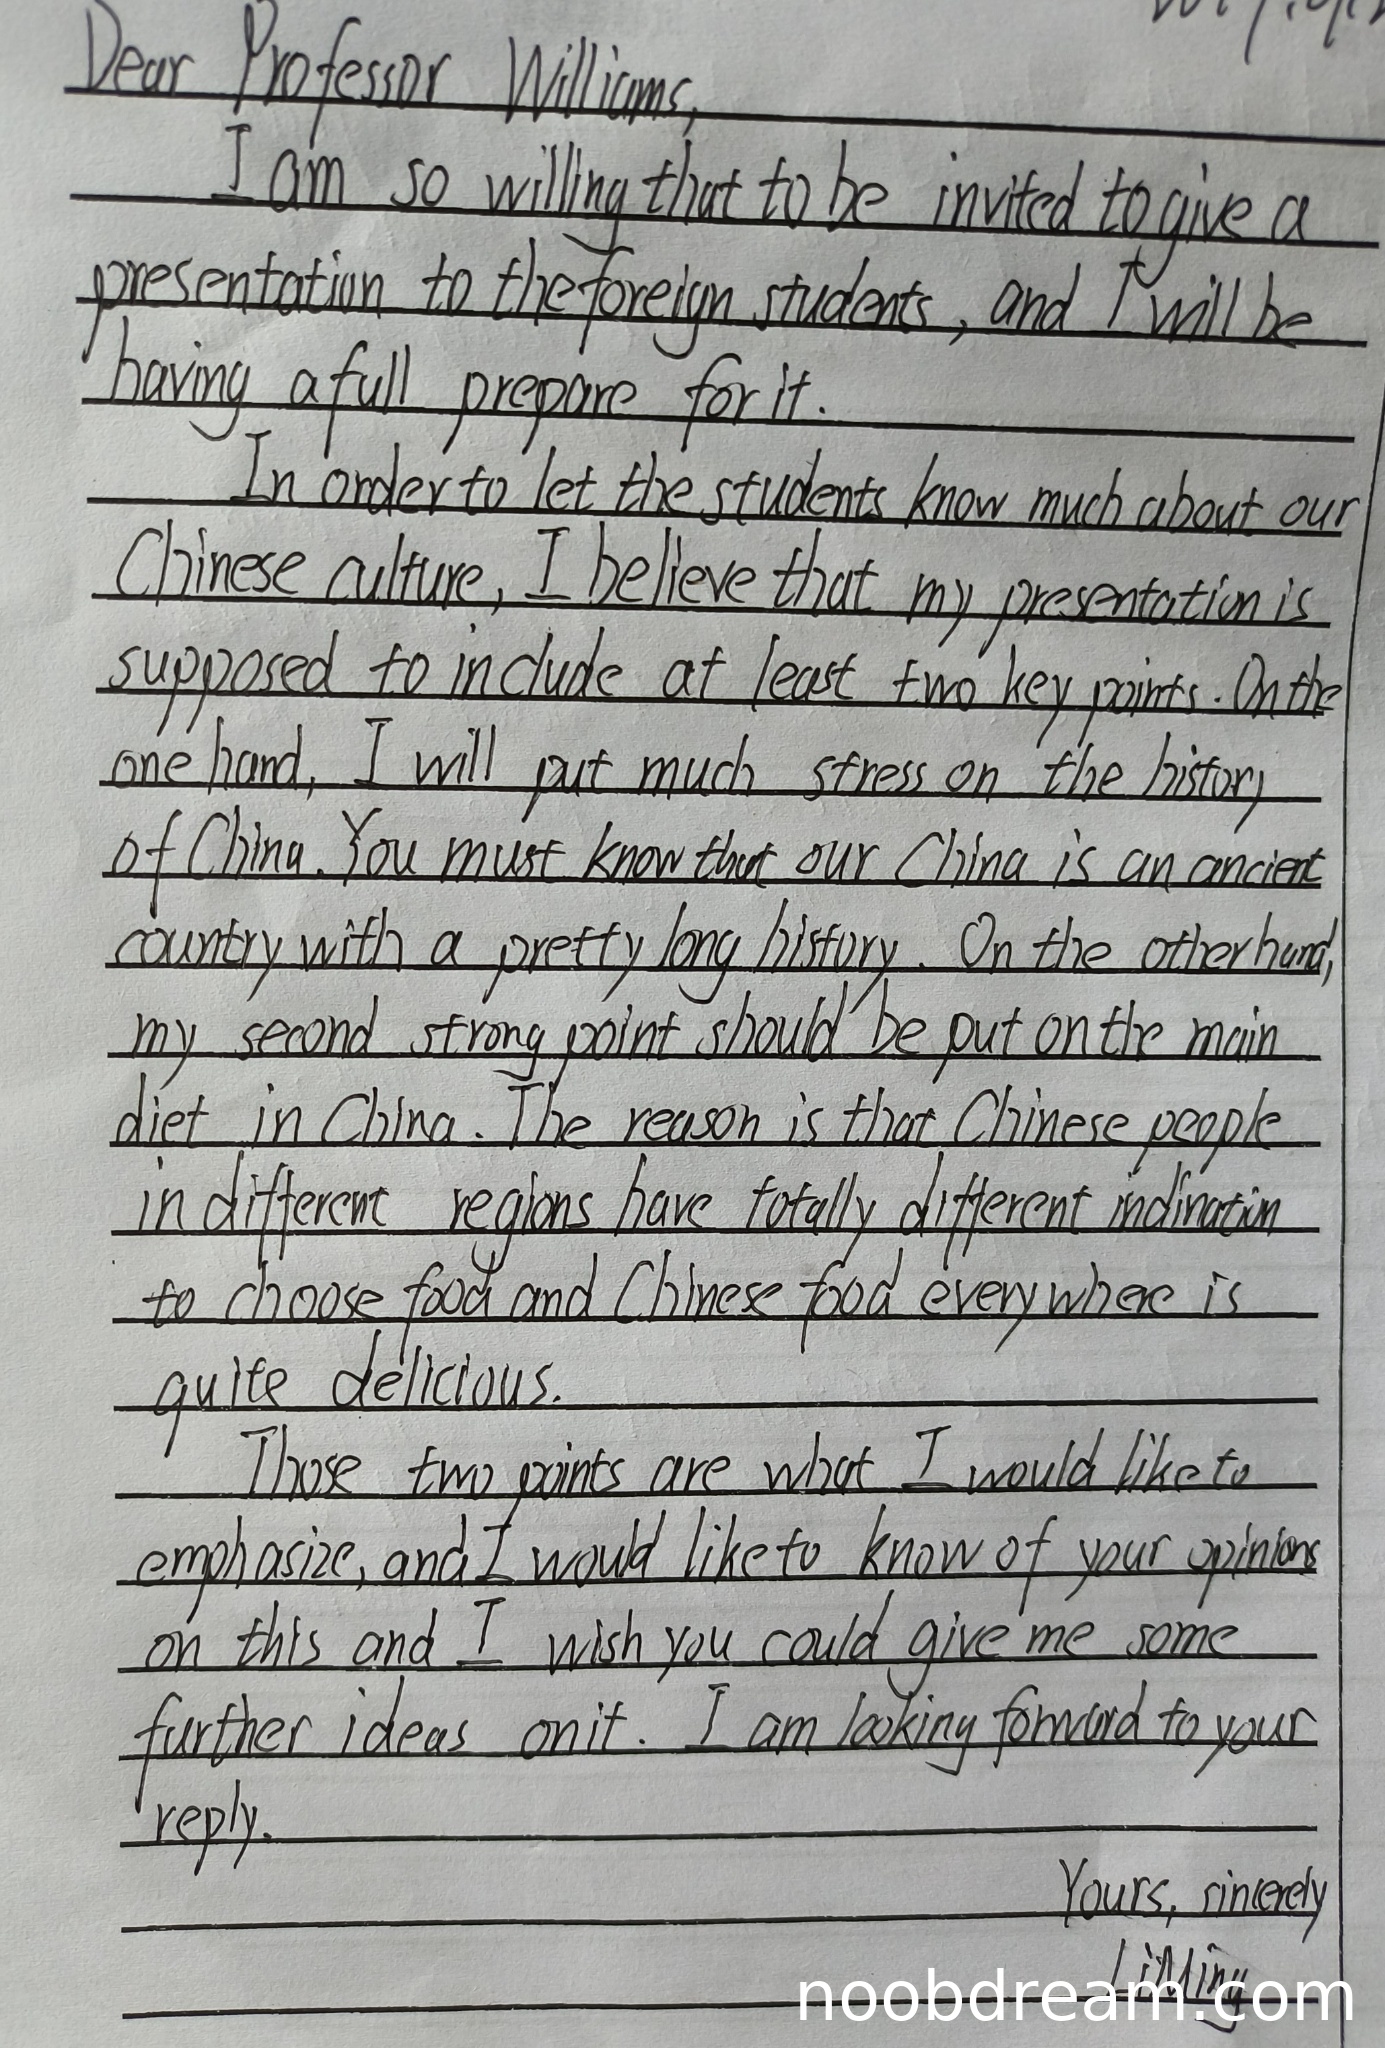 Dear Professor Williams,
I am so willing that to be invited to give a
presentation to the foreign students, and I will be
having a full prepare for it.
In order to let the students know much about our
Chinese culture, I believe that my presentation is
supposed to include at least two key points. On the
one hand, I will put much stress on the history
of China. You must know that our China is an ancient
country with a pretty long history. On the other hand,
my second strong point should be put on the main
diet in China. The reason is that Chinese people
in different regions have totally different inclination
to choose food and Chinese food everywhere is
quite delicious.
Those two points are what I would like to
emphasize, and I would like to know of your opinions
on this and I wish you could give me some
further ideas on it. I am looking forward to your
reply.
Yours, sincerely
LiMing
noobdream.com